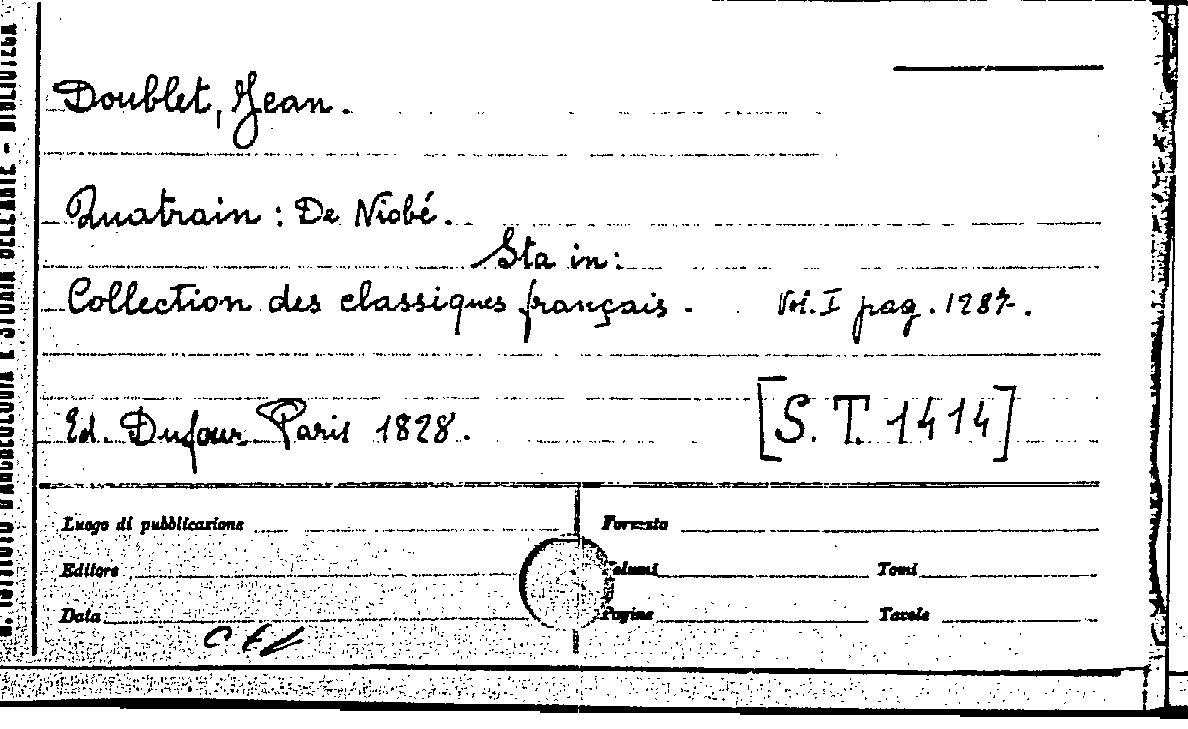 Doublet, Jean.
Quatrain : De Niobé.
Sta in:
Collection des classiques français. Vol. I pag. 1287.
Ed. Dufour Paris 1828.
[S. T. 1414]
Luogo di pubblicazione
Formato
Editore
Volumi
Tomi
Data
Pagine
Tavole
R. ISTITUTO D'ARCHEOLOGIA E STORIA DELL'ARTE - BIBLIOTECA